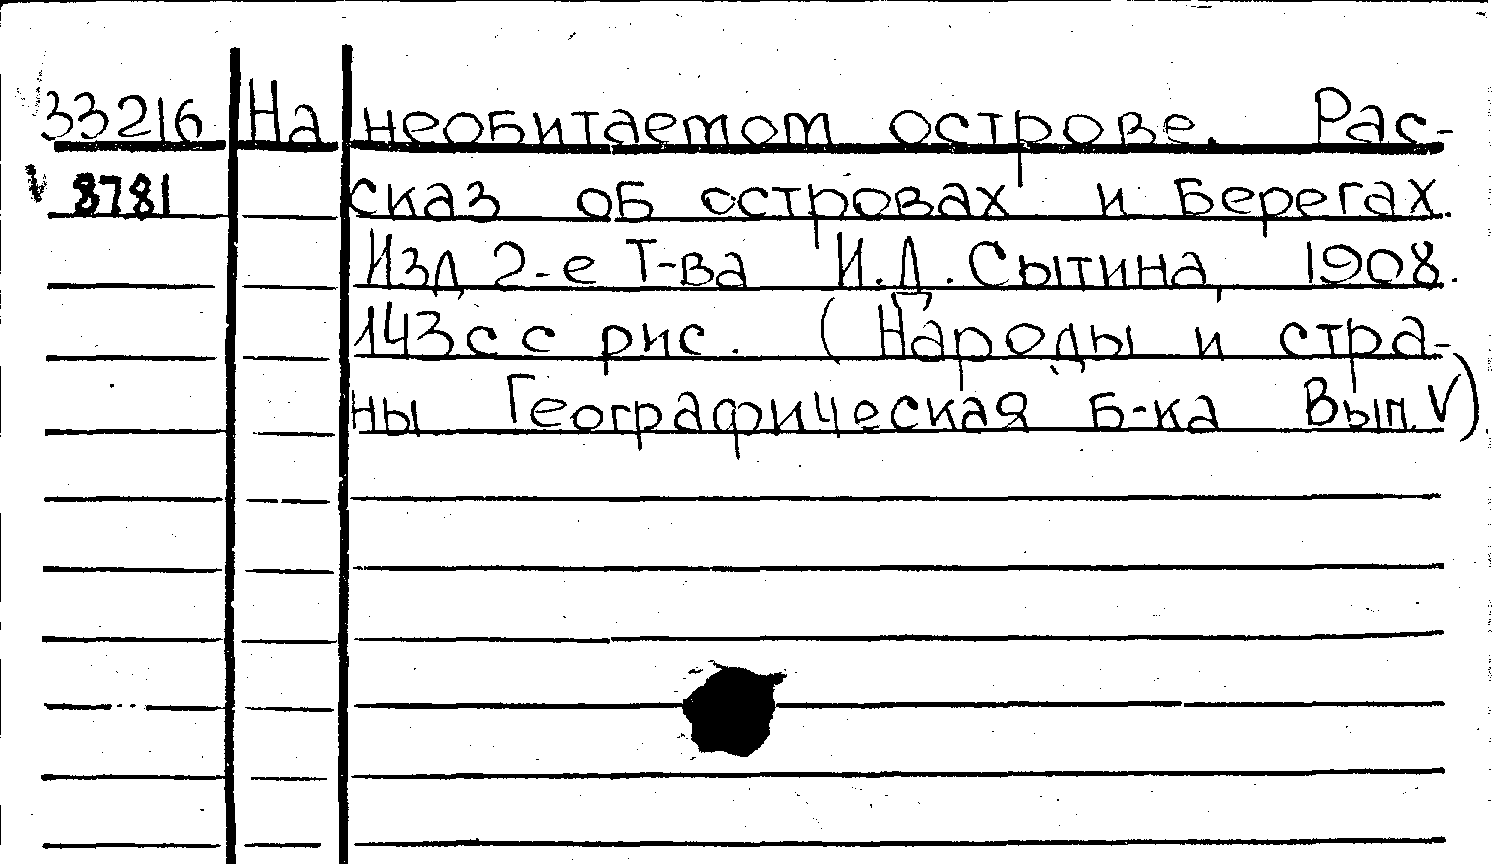 33216 На необитаемом острове. Рас-
8781 сказ об островах и берегах.
Изд 2-е Т-ва И.Д. Сытина, 1908.
143с с рис. (Народы и стра-
ны Географическая Б-ка Вып. V)